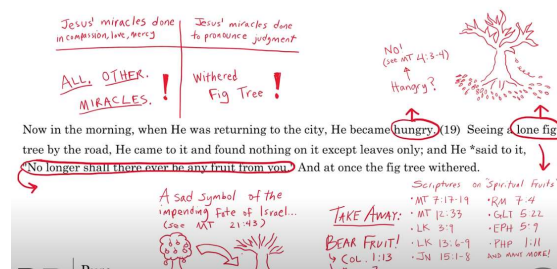 Jesus' miracles done
in compassion, love, mercy
Jesus' miracles done
to pronounce judgment
ALL. OTHER.
MIRACLES. !
Withered
Fig Tree !
No!
(see MT 4:3-4)
Hangry?
Now in the morning, when He was returning to the city, He became hungry. (19) Seeing a lone fig
tree by the road, He came to it and found nothing on it except leaves only; and He *said to it,
"No longer shall there ever be any fruit from you." And at once the fig tree withered.
A sad symbol of the
impending fate of Israel...
(see MT 21:43)
TAKE AWAY:
BEAR FRUIT!
↳ COL. 1:13
Scriptures on "Spiritual Fruits"
• MT 7:17-19
• MT 12:33
• LK 3:9
• LK 13:6-9
• JN 15:1-8
• RM 7:4
• GLT 5:22
• EPH 5:9
• PHP 1:11
AND MANY MORE!